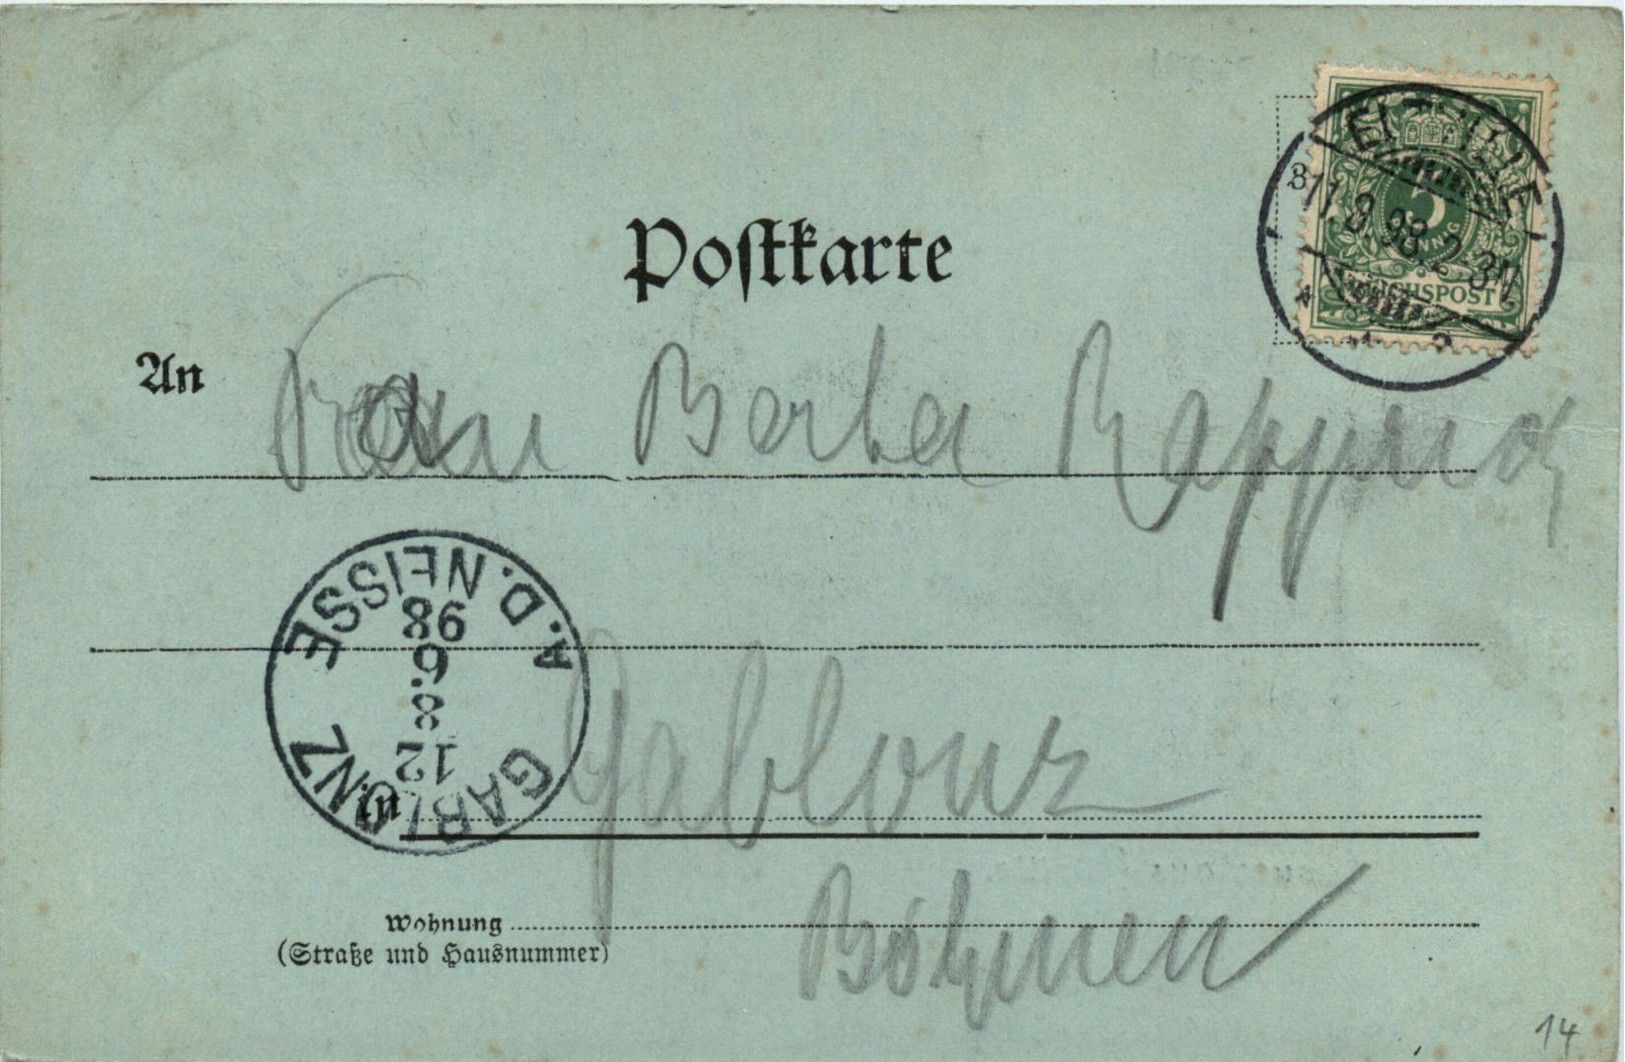 ELTVILLE
11.8.98.2-3N
5
REICHSPOST
Postkarte
An
Frau Berta
A.D. NEISSE
98
6.
8
12
GABLONZ
in
Gablonz
Wohnung
(Straße und Hausnummer)
Böhmen
14